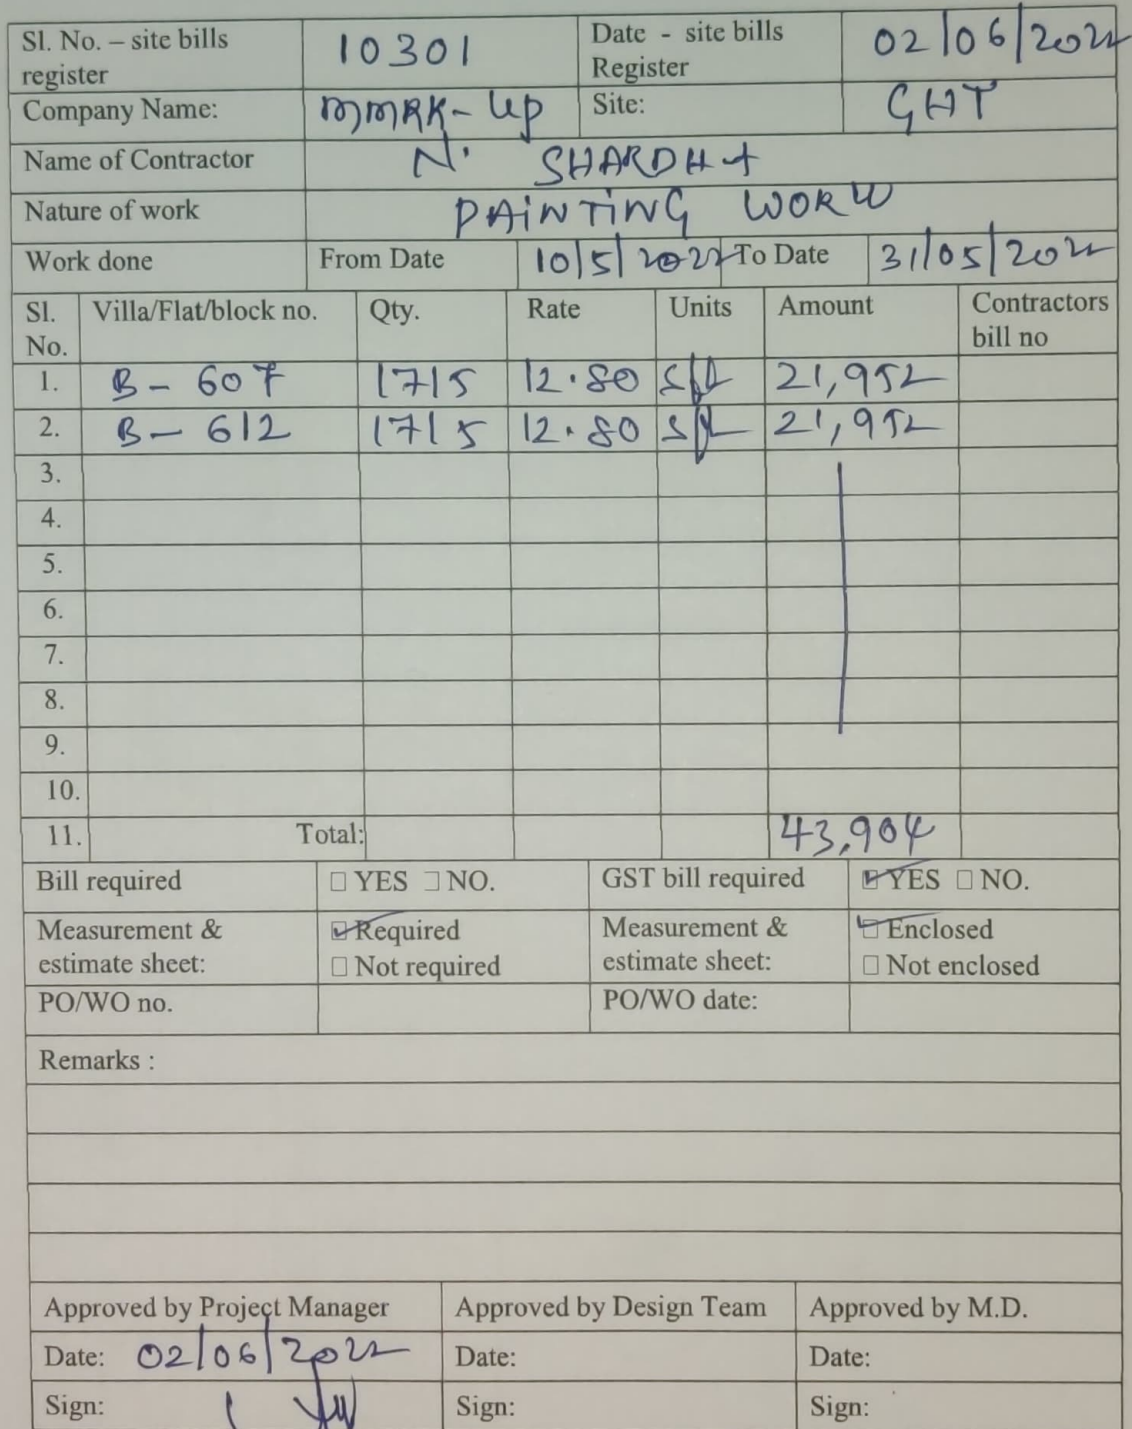 Sl. No. – site bills register 10301 Date - site bills Register 02/06/2022
Company Name: MMRK-Up Site: GHT
Name of Contractor N. SHARDHA
Nature of work PAINTING WORK
Work done From Date 10/5/2022 To Date 31/05/2022
Sl. No. Villa/Flat/block no. Qty. Rate Units Amount Contractors bill no
1. B - 607 1715 12.80 sft 21,952
2. B - 612 1715 12.80 sft 21,952
3.
4.
5.
6.
7.
8.
9.
10.
11. Total: 43,904
Bill required □ YES □ NO. GST bill required ☑ YES □ NO.
Measurement & estimate sheet: ☑ Required □ Not required Measurement & estimate sheet: ☑ Enclosed □ Not enclosed
PO/WO no. PO/WO date:
Remarks :
Approved by Project Manager Approved by Design Team Approved by M.D.
Date: 02/06/2022 Date: Date:
Sign: Sign: Sign: